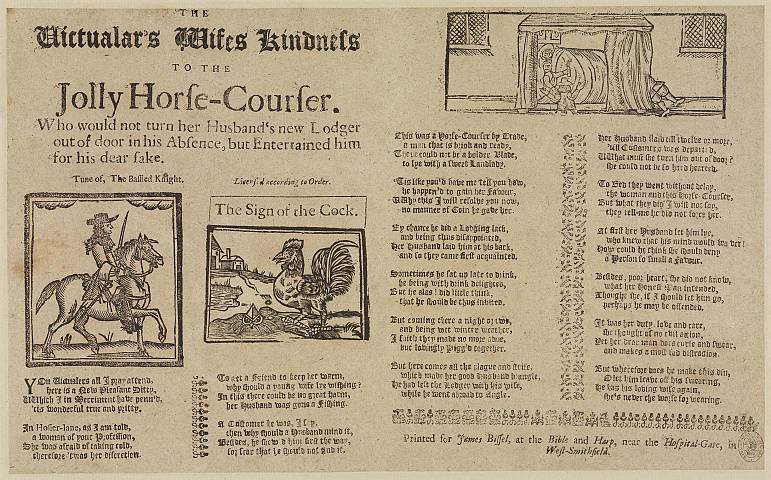 THE
Victualar's Wifes Kindness
TO THE
Jolly Horse-Courser.
Who would not turn her Husband's new Lodger
out of door in his Absence, but Entertained him
for his dear sake.
Tune of, The Baffled Knight.
Licens'd according to Order.
The Sign of the Cock.
YOu Victualers all I pray attend,
here is a New Pleasant Ditty,
Which I in Merriment have penn'd,
'tis wonderful true and pritty.
In Hosier-lane, as I am told,
a woman of your Profession,
She was afraid of taking cold,
therefore 'twas her discretion.
To get a Friend to keep her warm,
why should a young wife lye wishing?
In this there could be no great harm,
her Husband was gone a Fishing.
A Customer he was, I say,
then why should a Husband mind it,
Besides, he shew'd him first the way,
for fear that he should not find it.
This was a Horse-Courser by Trade,
a man that is brisk and ready,
There could not be a bolder Blade,
to lye with a sweet Landlady.
'Tis like you'd have me tell you how,
he happen'd to gain her Favour,
Why this I will resolve you now,
no manner of Coin he gave her.
By chance he did a Lodging lack,
and being thus disappointed,
Her Husband laid him at his back,
and so they came first acquainted.
Sometimes he sat up late to drink,
he being with drink delighted,
But he alas! did little think,
that he should be thus invited.
But coming there a night or two,
and being wet winter weather,
I faith they made no more adue,
but lovingly Pigg'd together.
But here comes all the plague and strife,
which made her good Husband brangle,
He had left the Lodger with his Wife,
while he went abroad to Angle.
Her Husband staid till twelve or more,
'till Customers was departed,
What must she turn him out of door?
she could not be so hard hearted.
To Bed they went without delay,
the woman and this Horse-Courser,
But what they did I will not say,
they tell me he did not force her.
At first her Husband let him lye,
who knew that his mind would waver!
How could he think she should deny
a Person so small a Favour.
Besides, poor heart, she did not know,
what her Honest Man intended,
Thought she, if I should let him go,
perhaps he may be offended.
It was her duty, love and care,
she thought of no evil action,
Yet her dear man does curse and swear,
and makes a most sad distraction.
But wherefore does he make this din,
let him leave off his swearing,
He has his loving wife again,
she's never the worse for wearing.
Printed for James Bissel, at the Bible and Harp, near the Hospital-Gate, in
West-Smithfield.